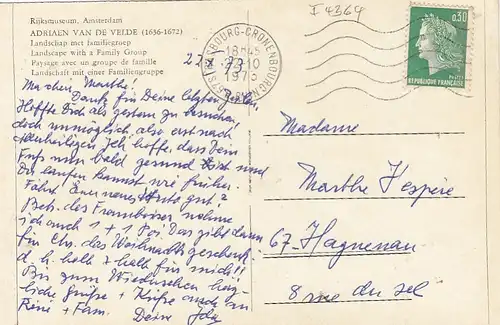 Rijksmuseum, Amsterdam
ADRIAEN VAN DE VELDE (1636-1672)
Landschap met familiegroep
Landscape with a Family Group
Paysage avec un groupe de famille
Landschaft mit einer Familiengruppe
I 4364
STRASBOURG-CRONENBOURG
18H45
22-10
1973
0,30
POSTES
REPUBLIQUE FRANÇAISE
Ma chère Marthe,
Dank für Deine letzten Zeilen,
Hoffte Dich als gestern zu besuchen,
doch unmöglich, also erst nach
Allerheiligen. Ich hoffe, dass Dein
Fuss nun bald gesund ist und
Du laufen kannst wie früher.
Fährt Euer neues Auto gut?
Betr. des Framboises nehme
ich auch 1 + 1 Poi Das gibt dann
für Chr. das Weihnachtsgeschenk
d. h. halb + halb für mich!!
Bis zum Wiedersehen herz-
liche Grüsse + Küsse auch an
René + Fam. Deine
Madame
Marthe Hespère
67 Haguenau
8 rue du sel